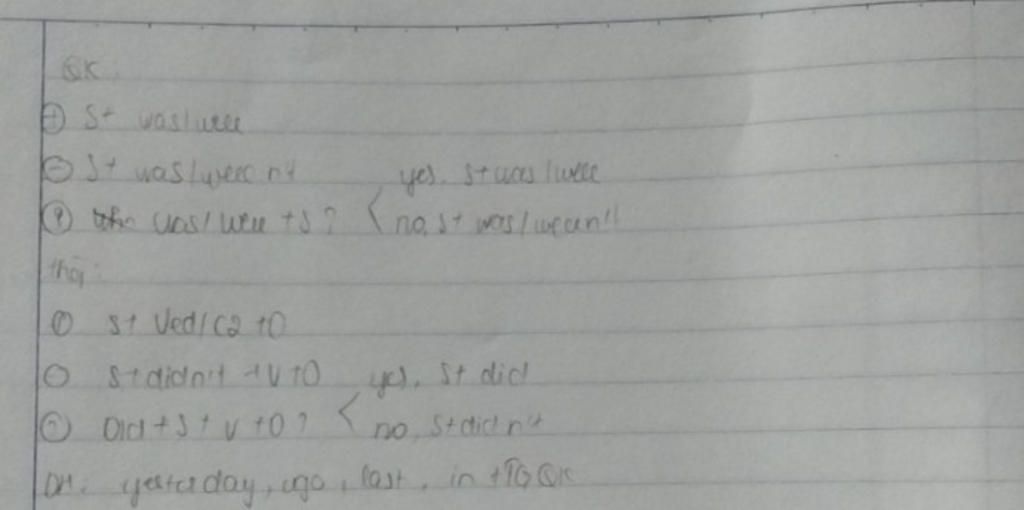 QK:
(+) S+ was/were
(-) S+ was/were n't yes, S+ was/were
(?) was/were +S? < no, S+ was/weren't
thg:
(+) S+ Ved/C2 +O
(-) S+didn't +V+O yes, S+ did
(?) Did+S+V+O? < no, S+didn't
DH: yesterday, ago, last, in +TGQK